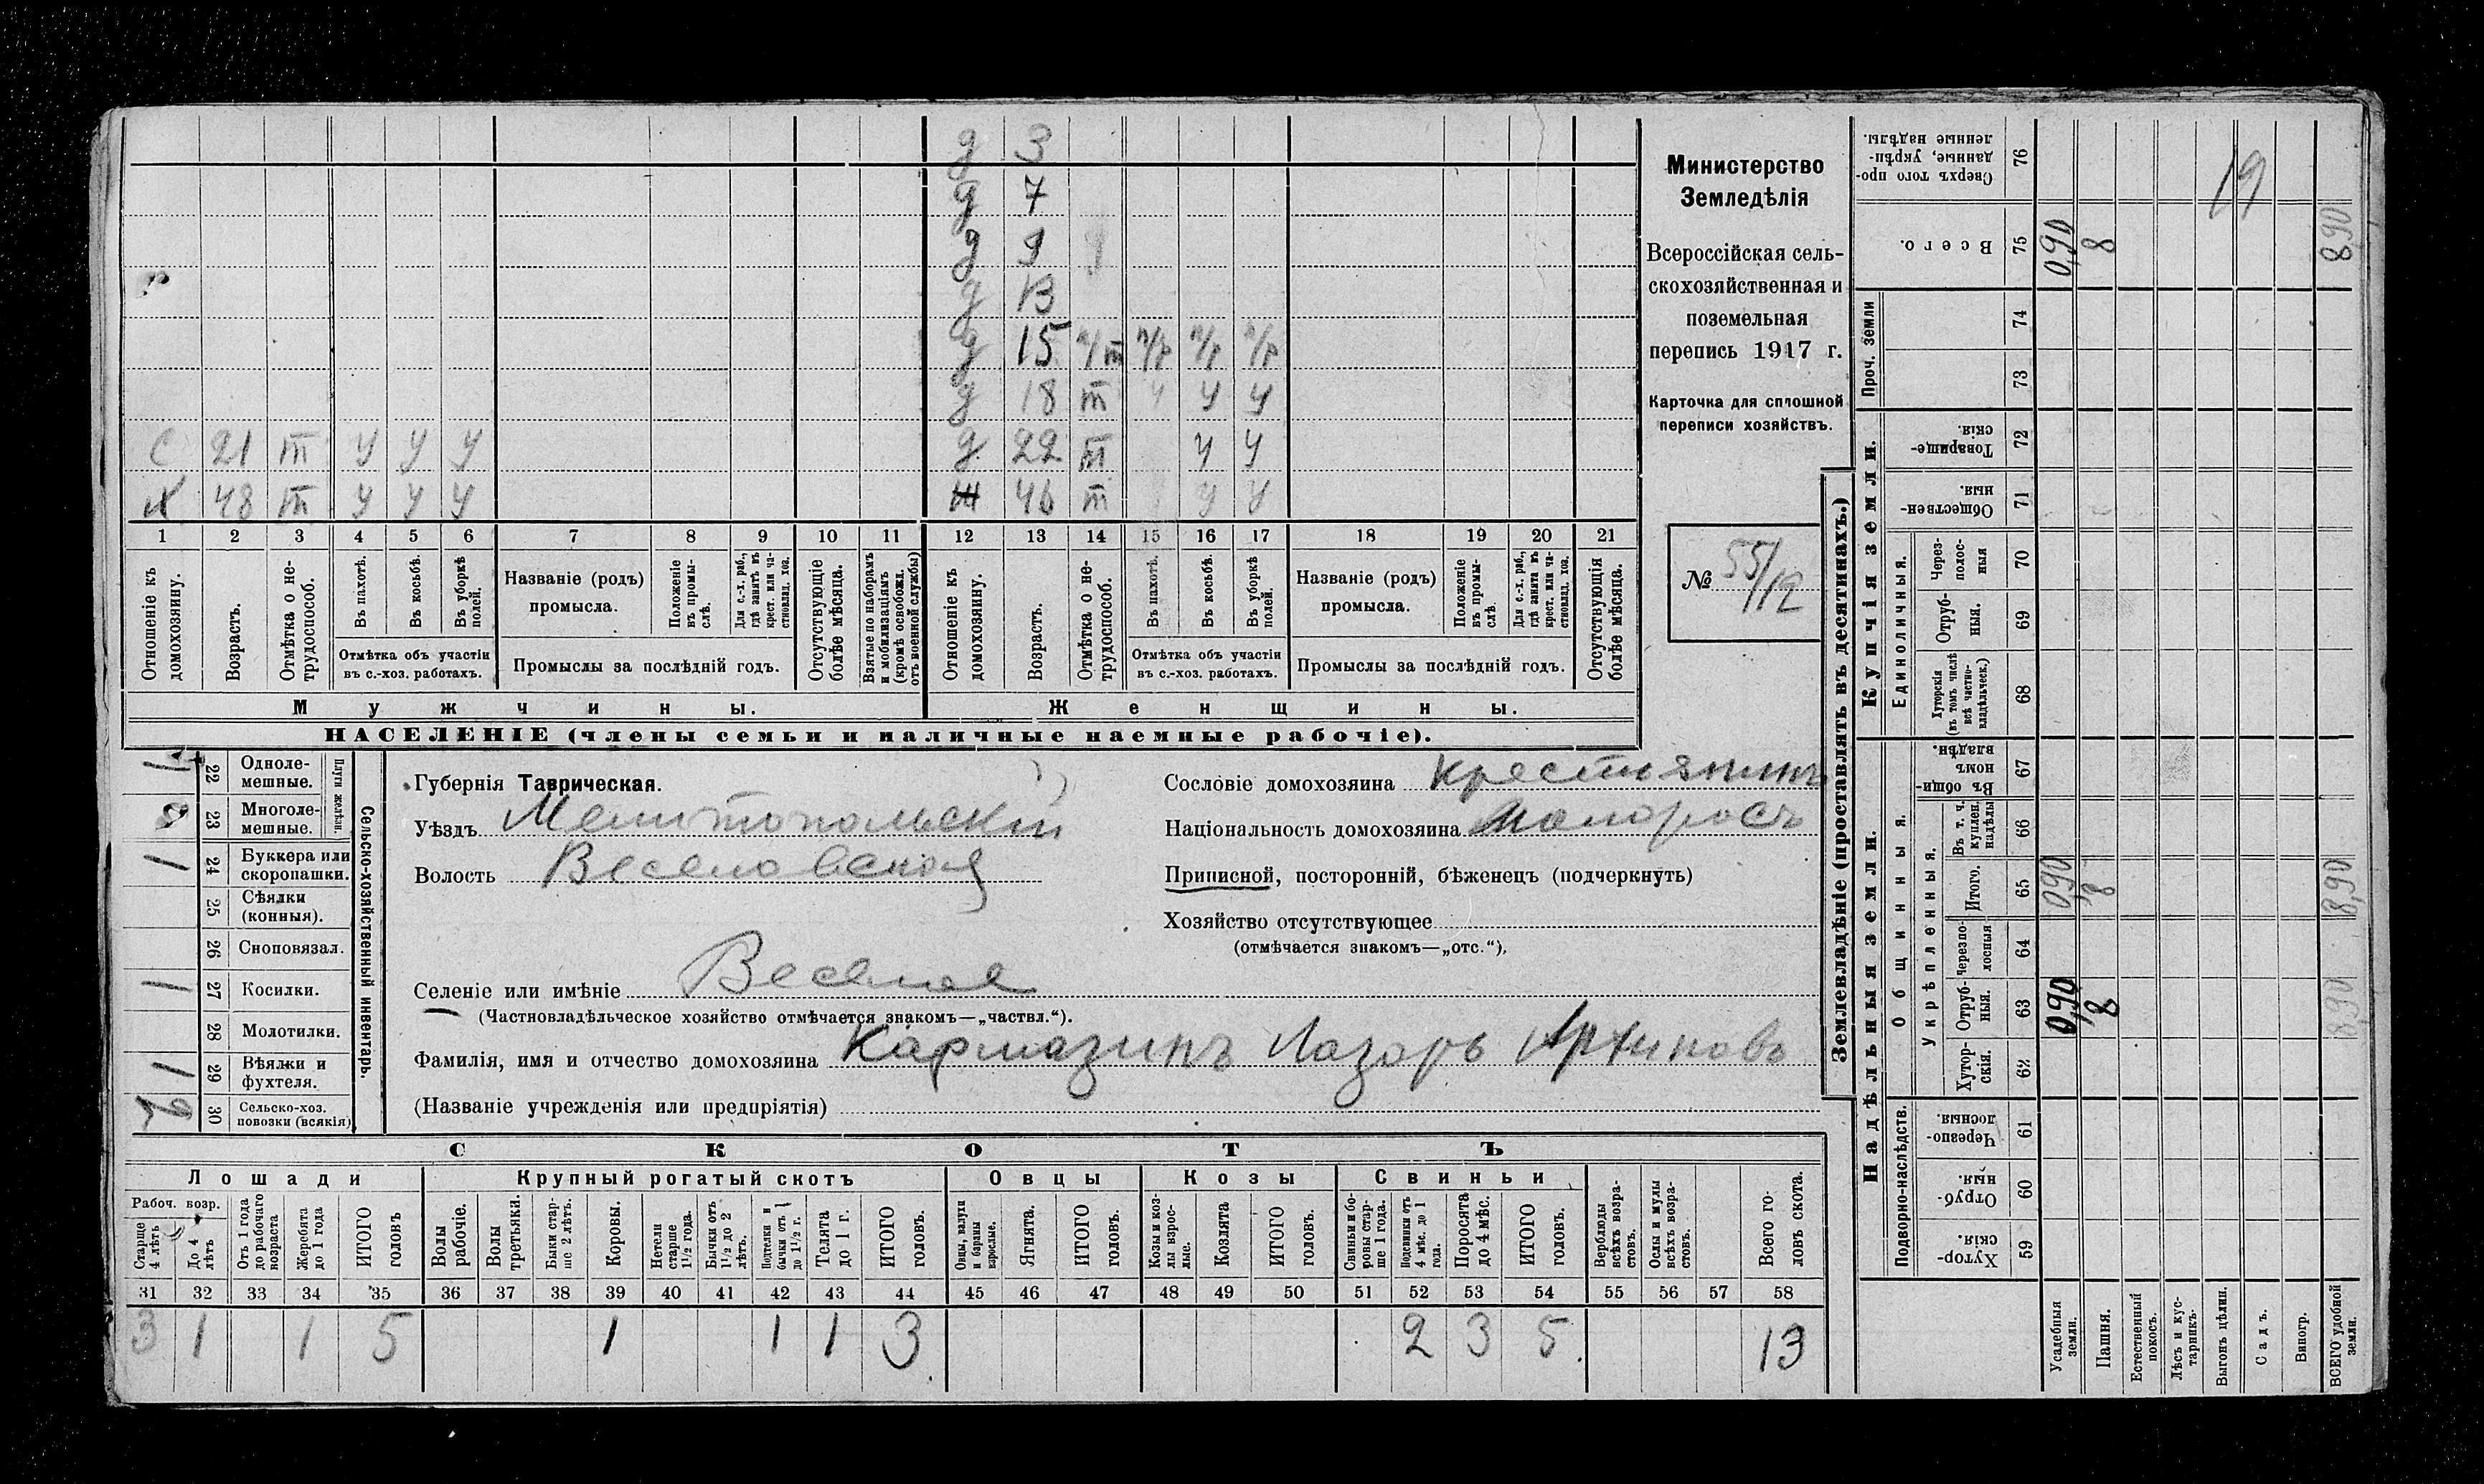 д 3
д 7
д 9
д 13
д 15 п/т п/р п/р п/р
д 18 т у у у
С 21 т у у у д 22 т у у
Х 48 т у у у Ж 46 т у у
1 2 3 4 5 6 7 8 9 10 11 12 13 14 15 16 17 18 19 20 21
Отношеніе къ домохозяину.
Возрастъ.
Отмѣтка о не-
трудоспособ.
Въ пахотѣ.
Въ косьбѣ.
Въ уборкѣ
полей.
Отмѣтка объ участіи
въ с.-хоз. работахъ.
Названіе (родъ)
промысла.
Положеніе
въ промы-
слѣ.
Для с.-х. раб.,
гдѣ занятъ въ
крест. или ча-
стновлад. хоз.
Промыслы за послѣдній годъ.
Отсутствующіе
болѣе мѣсяца.
Взятые по наборамъ
и мобилизаціямъ
(кромѣ освобожд.
отъ военной службы)
Отношеніе къ
домохозяину.
Возрастъ.
Отмѣтка о не-
трудоспособ.
Въ пахотѣ.
Въ косьбѣ.
Въ уборкѣ
полей.
Отмѣтка объ участіи
въ с.-хоз. работахъ.
Названіе (родъ)
промысла.
Положеніе
въ промы-
слѣ.
Для с.-х. раб.,
гдѣ занятъ въ
крест. или ча-
стновлад. хоз.
Промыслы за послѣдній годъ.
Отсутствующія
болѣе мѣсяца.
Мужчины. Женщины.
НАСЕЛЕНІЕ (члены семьи и наличные наемные рабочіе).
Министерство
Земледѣлія
Всероссійская сель-
скохозяйственная и
поземельная
перепись 1917 г.
Карточка для сплошной
переписи хозяйствъ.
№ 55/12
Сельско-хозяйственный инвентарь.
Плуги желѣзн.
1 22 Одноле-
мешные.
23 Многоле-
мешные.
1 24 Буккера или
скоропашки.
25 Сѣялки
(конныя).
26 Сноповязал.
1 27 Косилки.
28 Молотилки.
1 29 Вѣялки и
фухтеля.
2 30 Сельско-хоз.
повозки (всякія)
Губернія Таврическая.
Уѣздъ Мелитопольскій
Волость Веселовская
Селеніе или имѣніе Веселое
(Частновладѣльческое хозяйство отмѣчается знакомъ—„частвл.“).
Фамилія, имя и отчество домохозяина Кармазинъ Лазарь Архиповъ
(Названіе учрежденія или предпріятія)
Сословіе домохозяина Крестьянинъ
Національность домохозяина Малоросъ
Приписной, посторонній, бѣженецъ (подчеркнуть)
Хозяйство отсутствующее
(отмѣчается знакомъ—„отс.“).
СКОТЪ
Лошади Крупный рогатый скотъ Овцы Козы Свиньи
Рабоч. возр.
Старше
4 лѣтъ
До 4
лѣтъ
Отъ 1 года
до рабочаго
возраста
Жеребята
до 1 года
ИТОГО
головъ
Волы
рабочіе.
Волы
третьяки.
Быки стар-
ше 2 лѣтъ.
Коровы.
Нетели
старше
1½ года.
Бычки отъ
1½ до 2
лѣтъ.
Подтелки и
бычки отъ 1
до 1½ г.
Телята
до 1 г.
ИТОГО
головъ.
Овцы, валухи
и бараны
взрослые.
Ягнята.
ИТОГО
головъ.
Козы и коз-
лы взрос-
лые.
Козлята
ИТОГО
головъ.
Свиньи и бо-
ровы стар-
ше 1 года.
Подсвинки отъ
4 мѣс. до 1
года.
Поросята
до 4 мѣс.
ИТОГО
головъ.
Верблюды
всѣхъ возра-
стовъ.
Ослы и мулы
всѣхъ возра-
стовъ.
Всего го-
ловъ скота.
31 32 33 34 35 36 37 38 39 40 41 42 43 44 45 46 47 48 49 50 51 52 53 54 55 56 57 58
3 1 1 5 1 1 1 3 2 3 5 13
Землевладѣніе (проставлять въ десятинахъ.)
Купчія земли.
Надѣльныя земли.
Сверхъ того про-
данные, укрѣп-
ленные надѣлы.
76 19
Всего.
75 0,90 8 8,90
Проч. земли
74
73
Товарище-
скія.
72
Обществен-
ныя.
71
Единоличныя.
Через-
полос-
ныя
70
Отруб-
ныя.
69
Хуторскія
(въ томъ числѣ
всѣ частно-
владѣльческ.)
68
Общинныя.
Въ общи-
номъ
владѣн.
67
Укрѣпленныя.
Въ т. ч.
куплен.
надѣлы
66
Итого.
65 0,90 8 8,90
Черезпо-
лосныя
64
Отруб-
ныя.
63 0,90 8 8,90
Хутор-
скія.
62
Подворно-наслѣдств.
Черезпо-
лосныя
61
Отруб-
ныя.
60
Хутор-
скія.
59
Усадебныя
земли.
Пашня.
Естественный
покосъ.
Лѣсъ и кус-
тарникъ.
Выгонъ цѣлин.
Садъ.
Виногр.
ВСЕГО удобной
земли.